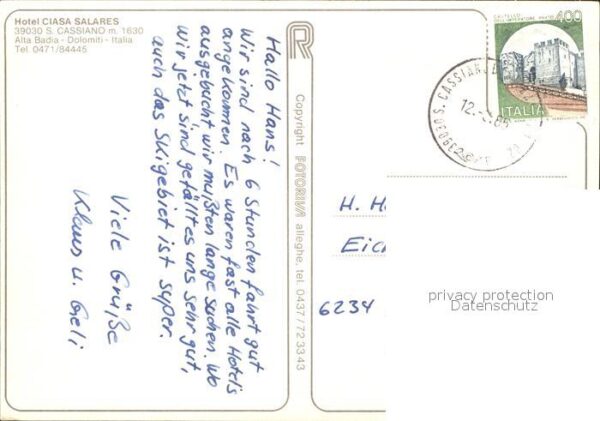 Hotel CIASA SALARES
39030 S. CASSIANO m. 1630
Alta Badia - Dolomiti - Italia
Tel. 0471/84445
Hallo Hans!
Wir sind nach 6 Stunden fahrt gut
angekommen. Es waren fast alle Hotels
ausgebucht wir mußten lange suchen. Wo
wir jetzt sind gefällt es uns sehr gut,
auch das Skigebiet ist super.
Viele Grüße
Klaus u. Geli
R
Copyright FOTORIVA alleghe, tel. 0437/723343
CASTELLO
DELL'IMPERATORE PRATO
400
ITALIA
39030 S. CASSIANO
H. H
Eic
6234
privacy protection
Datenschutz